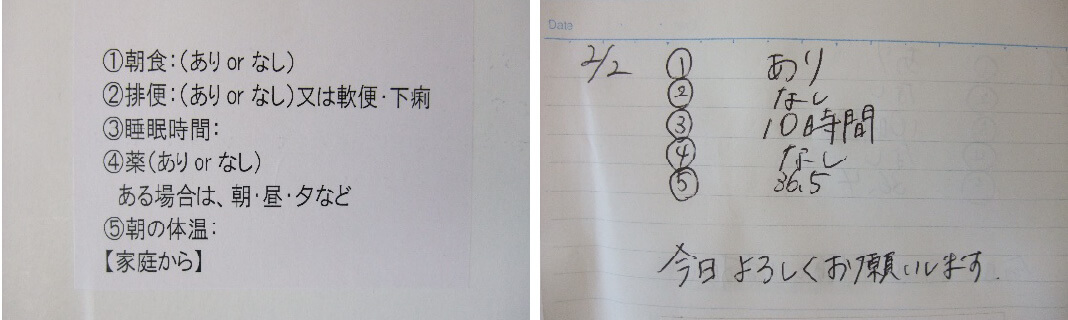 ①朝食：（あり or なし）
②排便：（あり or なし）又は軟便・下痢
③睡眠時間：
④薬（あり or なし）
ある場合は、朝・昼・夕など
⑤朝の体温：
【家庭から】
Date
2/2 ① あり
② なし
③ 10時間
④ なし
⑤ 36.5
今日よろしくお願いします.